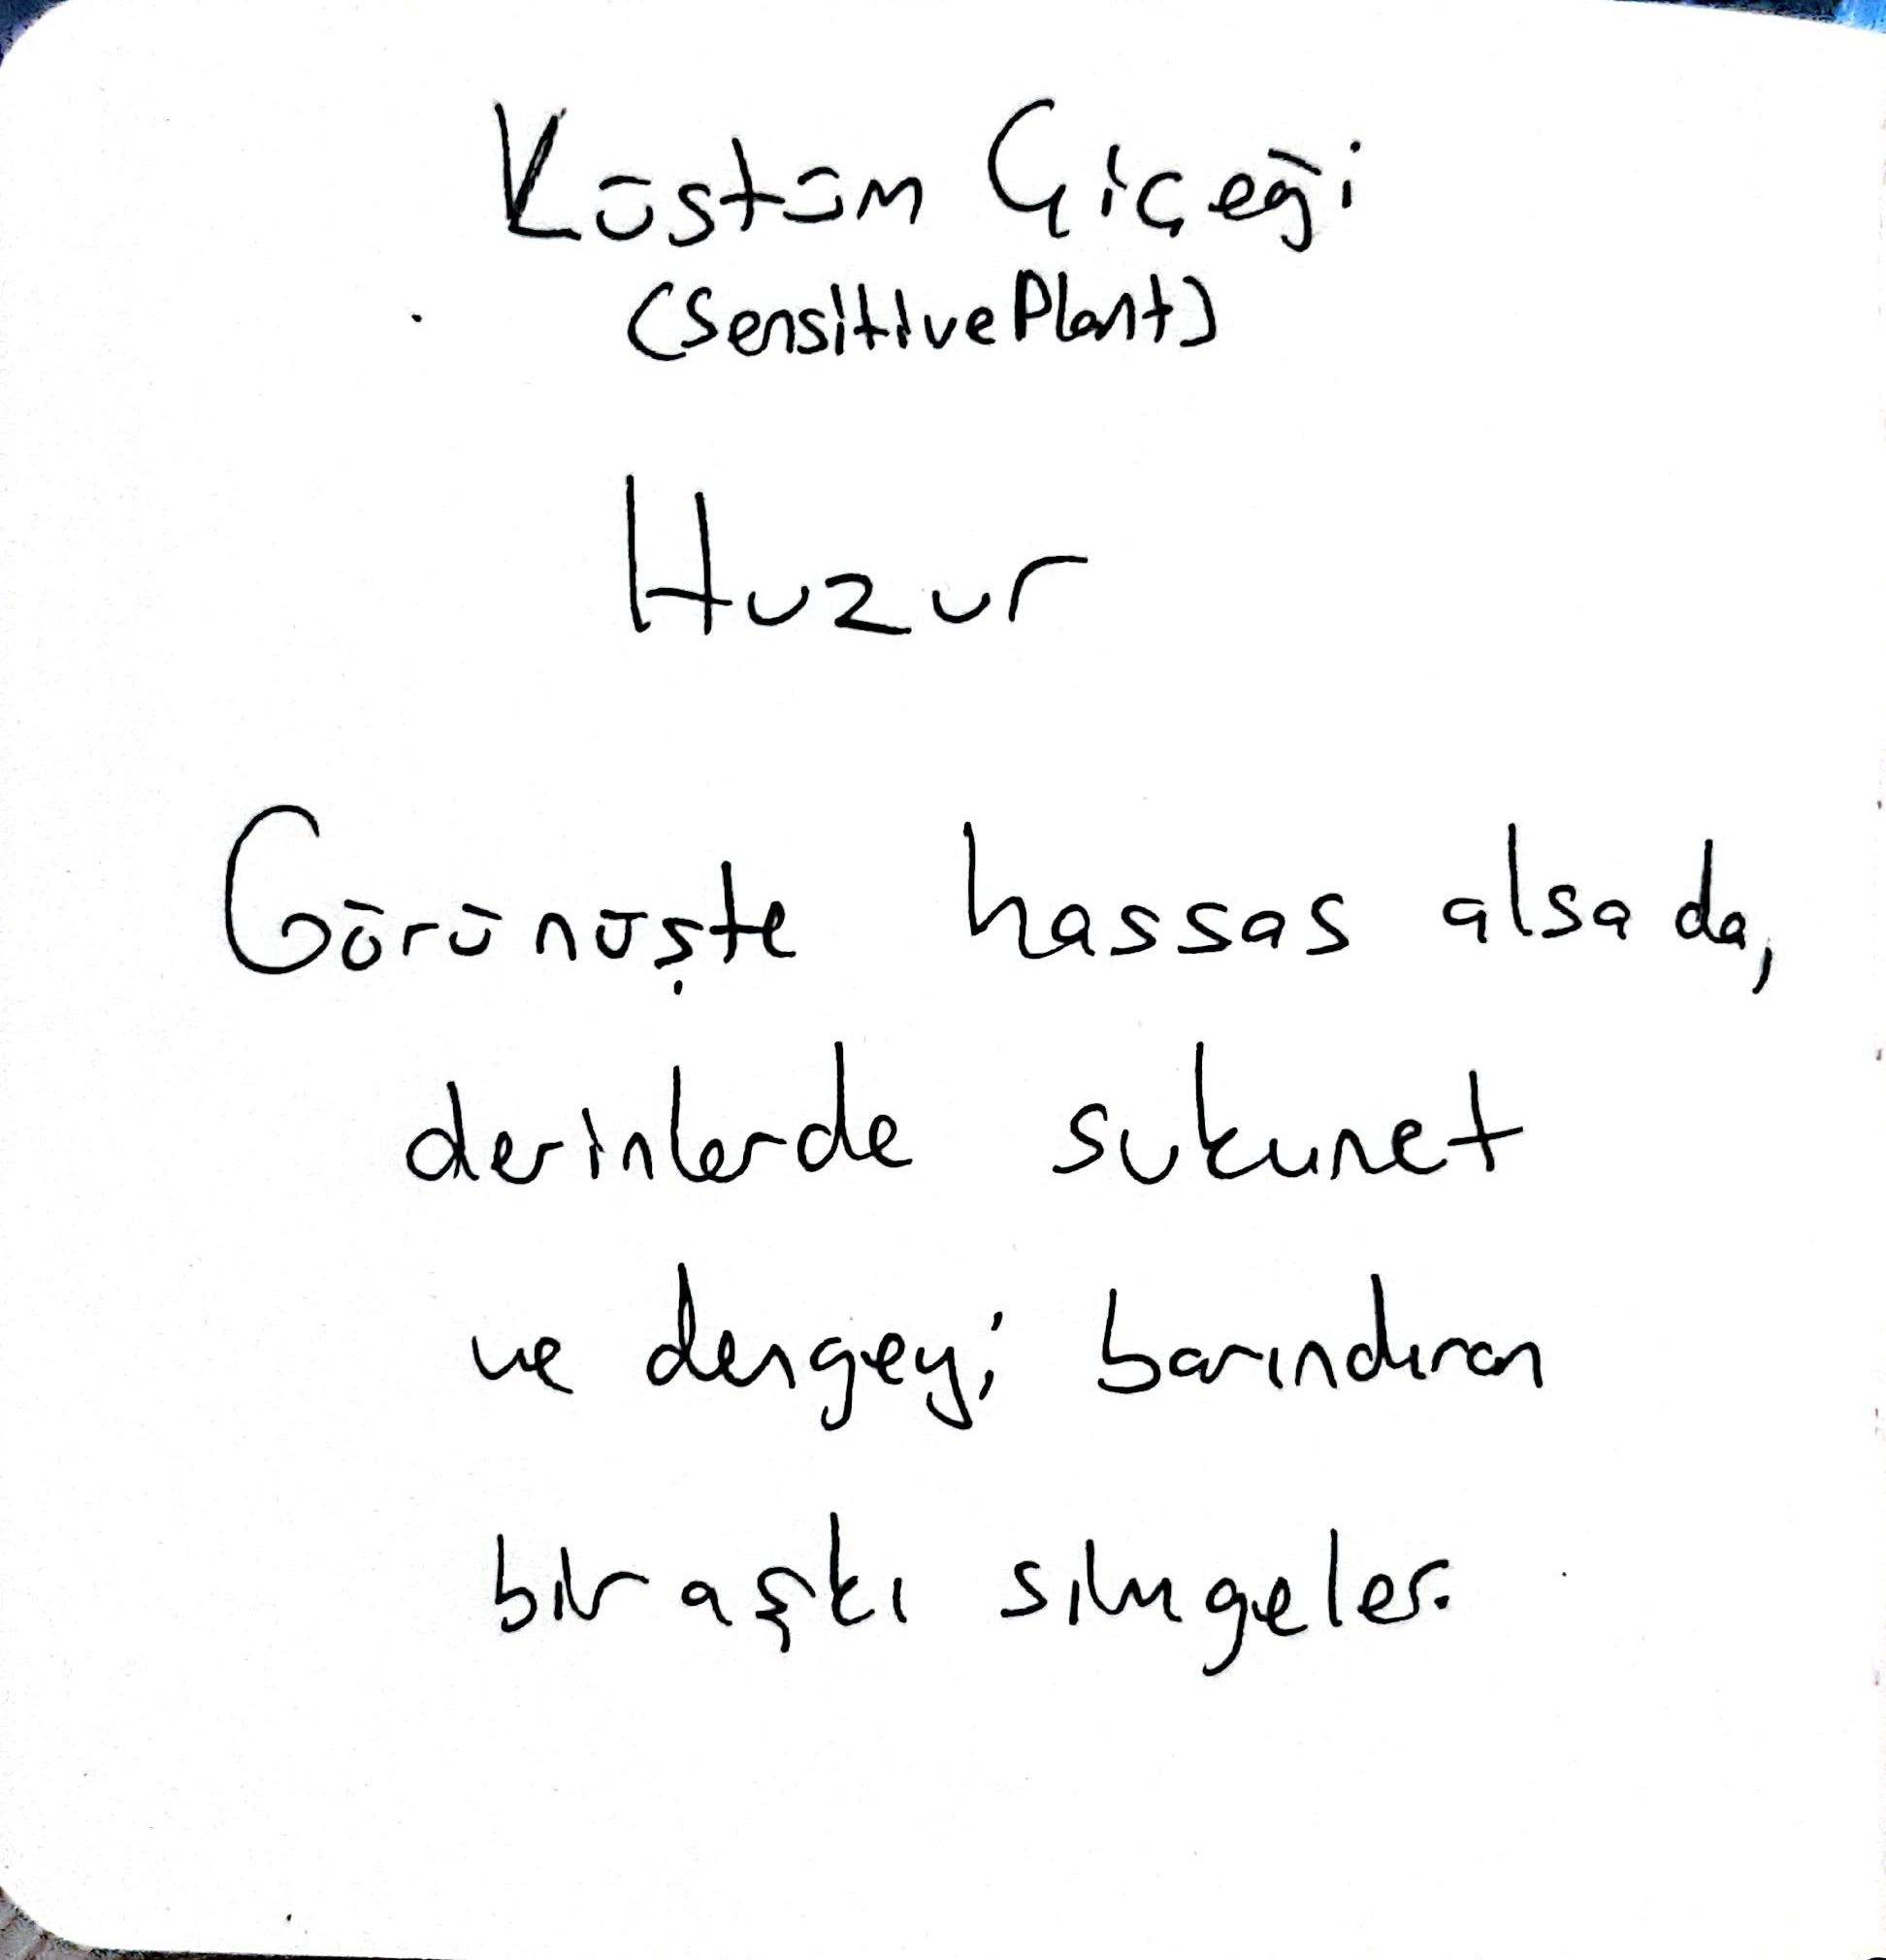 Küstüm Çiçeği
(Sensitive Plant)
Huzur
Görünüşte hassas alsa da,
derinlerde sukunet
ve dengeyi barındıran
bir aşkı simgeler.